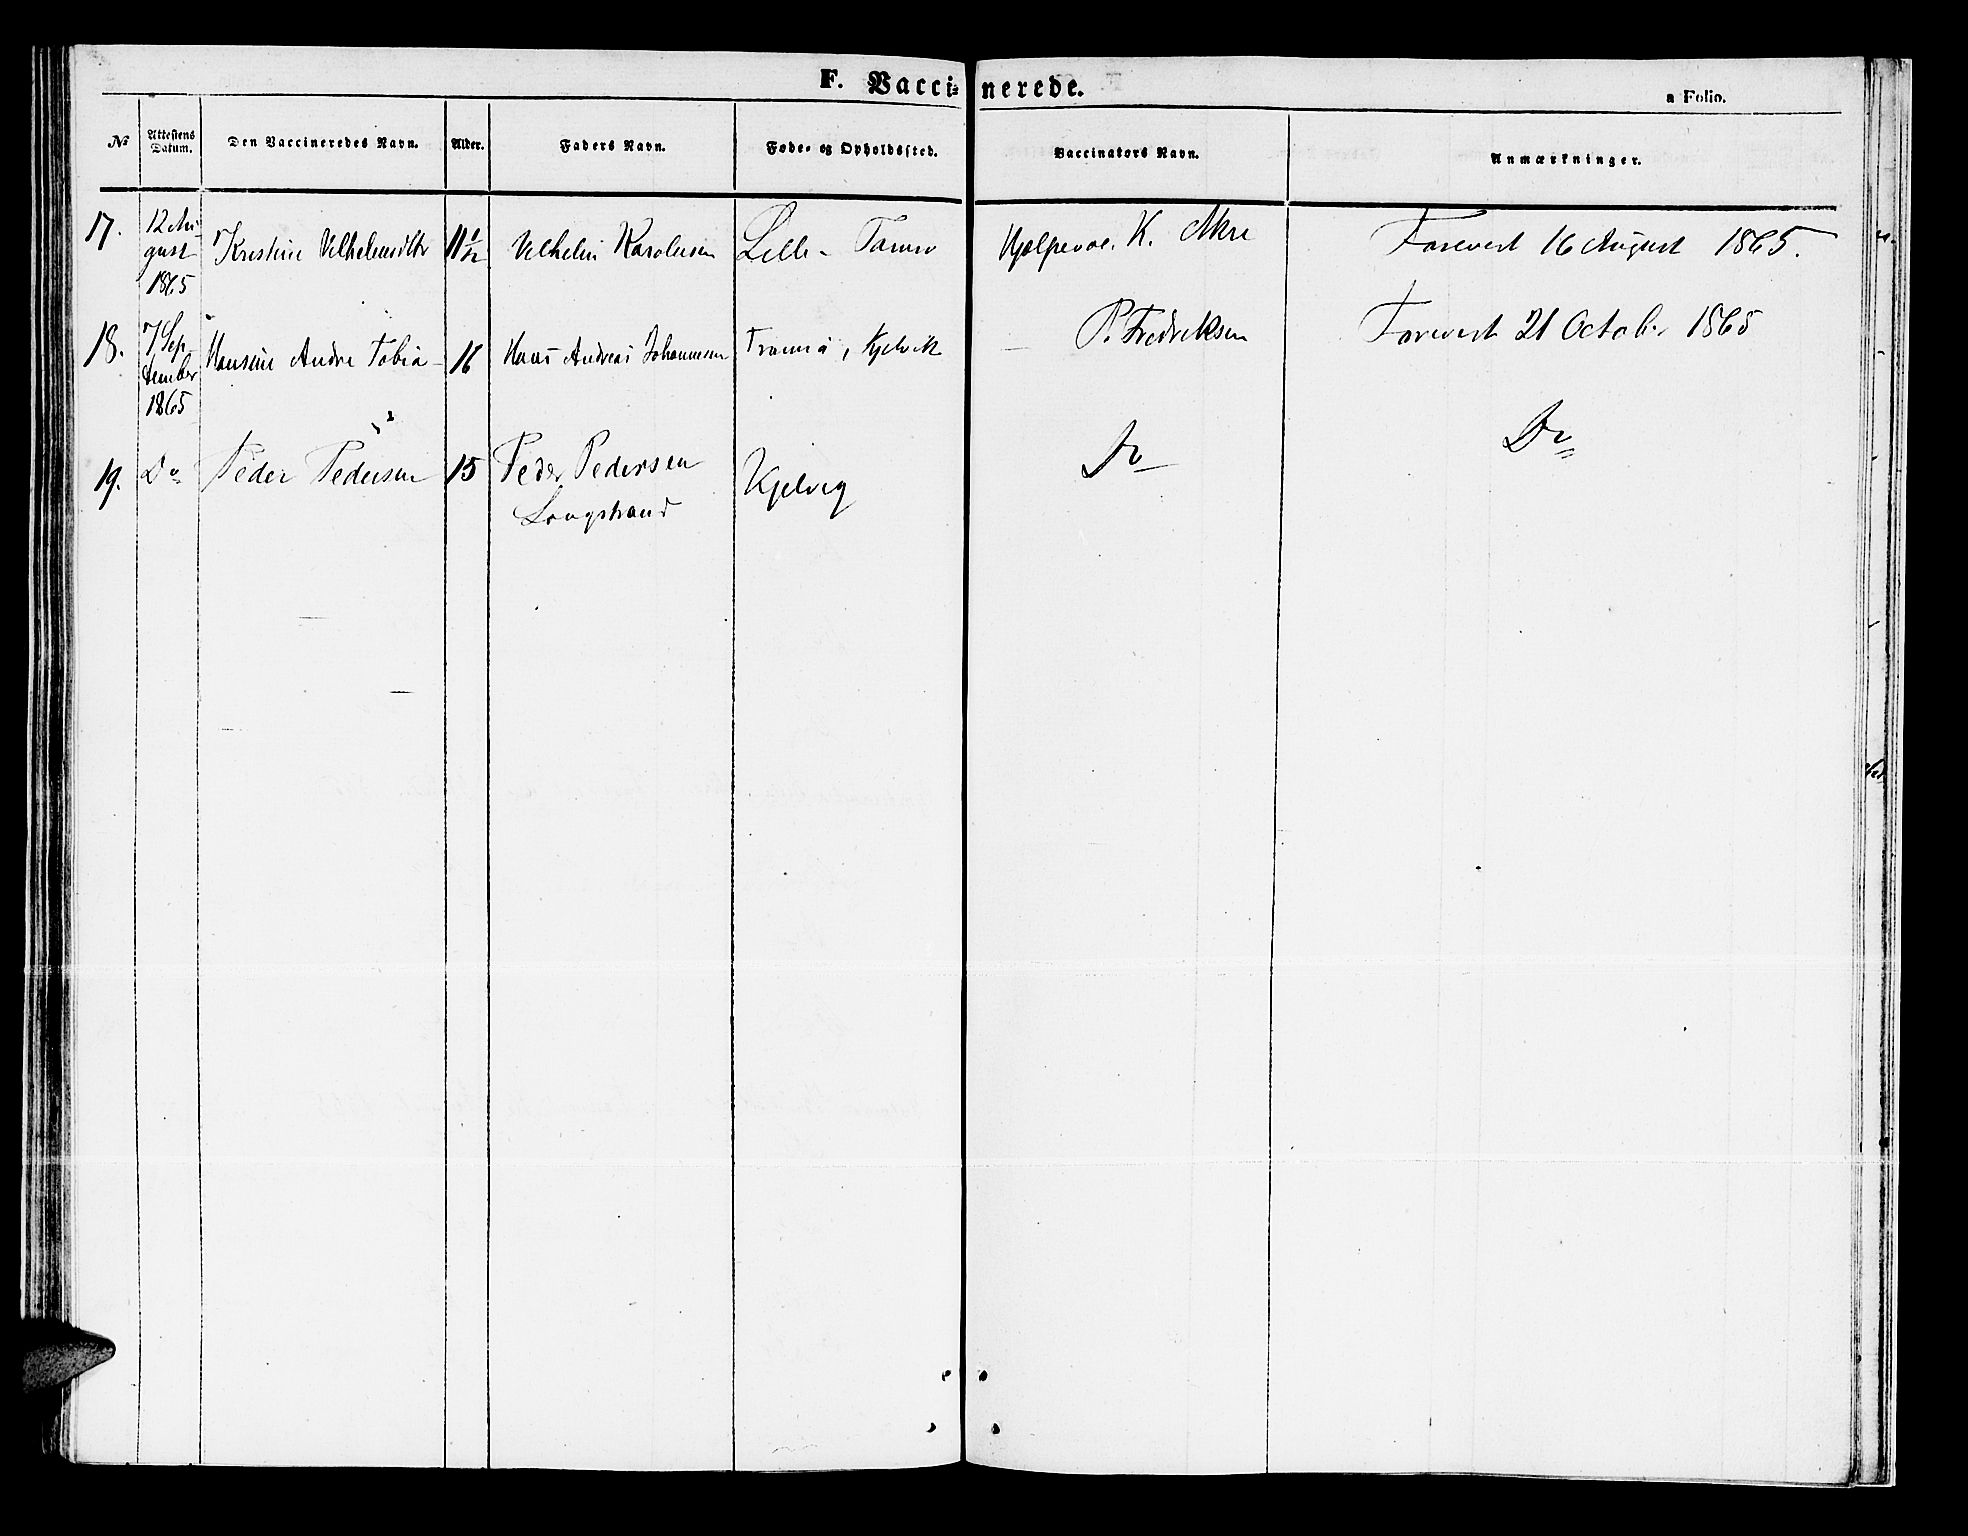 F. Vacci= nerede.
a Folio.
№ Attestens Datum. Den Vaccineredes Navn. Alder. Faders Navn. Føde- og Opholdssted. Vaccinators Navn. Anmærkninger.
17. 12 Au- Kristine Vilhelmsdtr 11 1/2 Vilhelm Karolusen Lille- Tamsø Hjælpevac. K. Akre Forevist 16 August 1865.
gust
1865
18. 7 Sep Hansine Andre Tobia 16 Hans Andreas Johannesen Tromsø, Kjelvik P. Fredriksen Forevist 21 October 1865
tember
1865
19. Do Peder Pedersen 15 Peder Pedersen Kjelvig Do Do